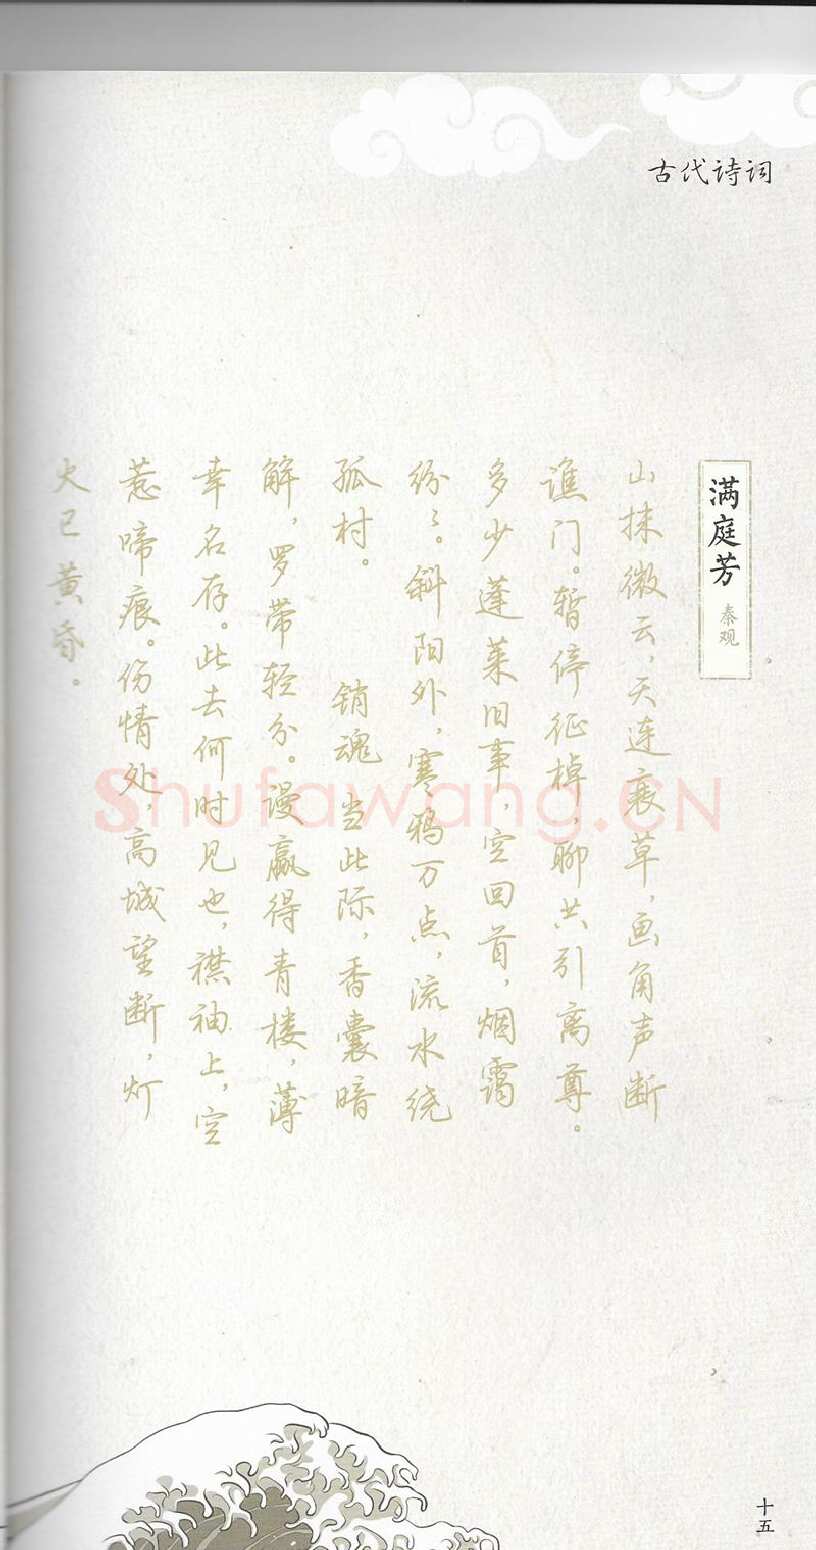 古代诗词
满庭芳
秦观
山抹微云，天连衰草，画角声断
谯门。暂停征棹，聊共引离尊。
多少蓬莱旧事，空回首，烟霭
纷纷。斜阳外，寒鸦万点，流水绕
孤村。 销魂 当此际，香囊暗
解，罗带轻分。谩赢得青楼，薄
幸名存。此去何时见也，襟袖上，空
惹啼痕。伤情处，高城望断，灯
火已黄昏。
Shufawang.CN
十五